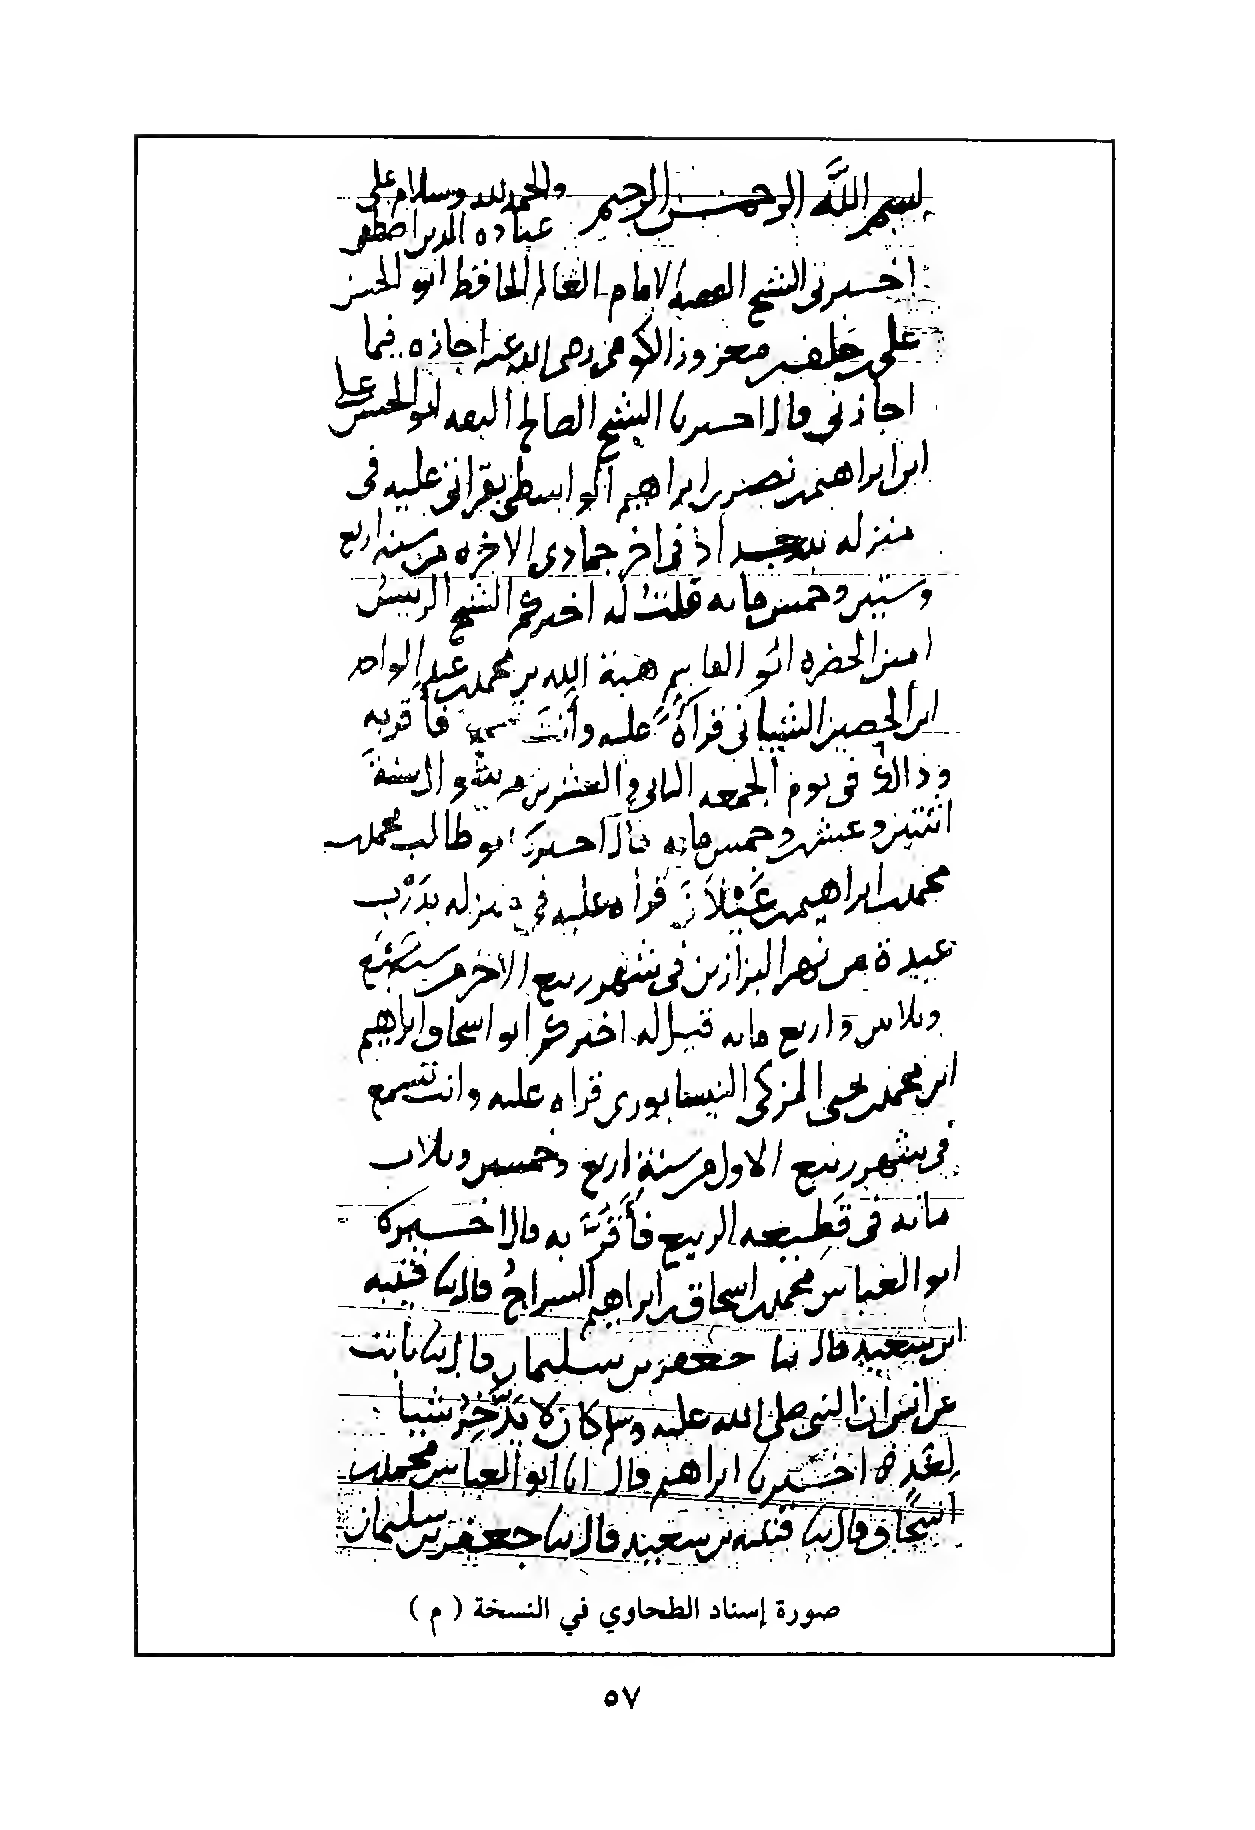 بسم الله الرحمن الرحيم والحمد لله وسلام على
عباده الذين اصطفى
اخبرني الشيخ الفقيه الامام العالم الحافظ ابو الحسن
على بن خلف بن معزوز الكومى رضى الله عنه اجازه فيما
اجازنى قال اخبرنا الشيخ الصالح الثقه ابو الحسن على
ابن ابراهيم بن نصر بن ابراهيم الواسطى بقراتى عليه فى
منزله ببغداذ فى اخر جمادى الاخره من سنه اربع
وستين وخمس مايه قلت له اخبركم الشيخ الرييس
امين الحضره ابو القاسم هبة الله بن محمد بن عبد الواحد
ابن الحصين الشيبانى قراة عليه وأنت تسمع فأقر به
وذالك فى يوم الجمعه الثانى والعشرين من شوال سنة
اثنتين وعشرين وخمس مايه قال اخبرنا ابو طالب محمد بن
محمد بن ابراهيم بن غَيْلَان قراه عليه فى منزله بدَرْب
عبدة من نهر البزازين فى شهر ربيع الاخر من سنة سَبْع
وثلاثين واربع مايه قيل له اخبركم ابو اسحاق ابراهيم
ابن محمد بن يحيى المزكى النيسابورى قراه عليه وانت تسمع
فى شهر ربيع الاول من سنة اربع وخمسين وثلاث
مايه فى قَطِيعه الربيع فأَقَرَّ به قال اخبرنا
ابو العباس محمد بن اسحاق بن ابراهيم السراجُ قال ثنا قتيبه
ابن سعيد قال ثنا جعفر بن سليمان قال ثنا ثابت
عن انس ان النبى صلى الله عليه وسلم كان لا يَدَّخِرُ شيئا
لِغدٍ اخبرنا ابراهيم قال انا ابو العباس محمد بن
اسحاق قال ثنا قتيبه بن سعيد قال ثنا جعفر بن سليمان
صورة إسناد الطحاوي في النسخة ( م )
٥٧